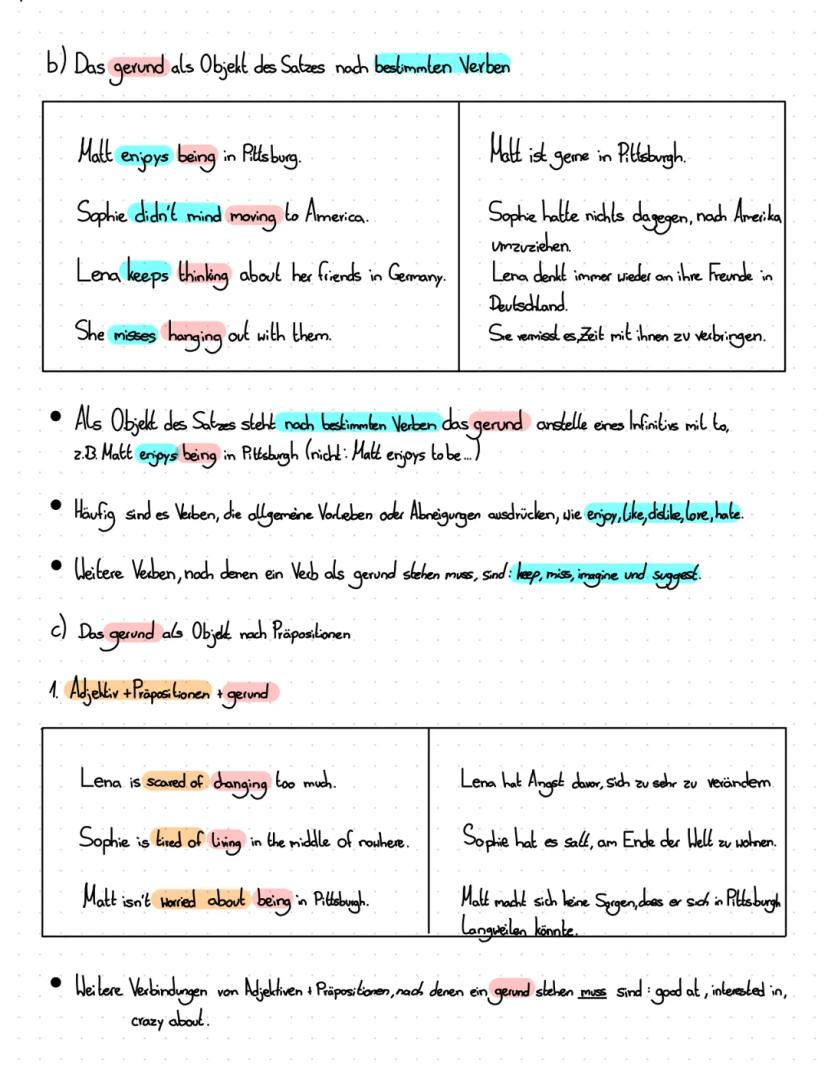 b) Das gerund als Objekt des Satzes nach bestimmten Verben
Matt enjoys being in Pittsburg.
Matt ist gerne in Pittsburgh.
Sophie didn't mind moving to America.
Sophie hatte nichts dagegen, nach Amerika
umzuziehen.
Lena keeps thinking about her friends in Germany.
Lena denkt immer wieder an ihre Freunde in
Deutschland.
She misses hanging out with them.
Sie vermisst es, Zeit mit ihnen zu verbringen.
• Als Objekt des Satzes steht nach bestimmten Verben das gerund anstelle eines Infinitivs mit to,
z.B. Matt enjoys being in Pittsburgh (nicht: Matt enjoys to be...)
• Häufig sind es Verben, die allgemeine Vorlieben oder Abneigungen ausdrücken, wie enjoy, like, dislike, love, hate.
• Weitere Verben, nach denen ein Verb als gerund stehen muss, sind: keep, miss, imagine und suggest.
c) Das gerund als Objekt nach Präpositionen
1. Adjektiv + Präpositionen + gerund
Lena is scared of changing too much.
Lena hat Angst davor, sich zu sehr zu verändern
Sophie is tired of living in the middle of nowhere.
Sophie hat es satt, am Ende der Welt zu wohnen.
Matt isn't worried about being in Pittsburgh.
Matt macht sich keine Sorgen, dass er sich in Pittsburgh
langweilen könnte.
• Weitere Verbindungen von Adjektiven + Präpositionen, nach denen ein gerund stehen muss sind: good at, interested in,
crazy about.